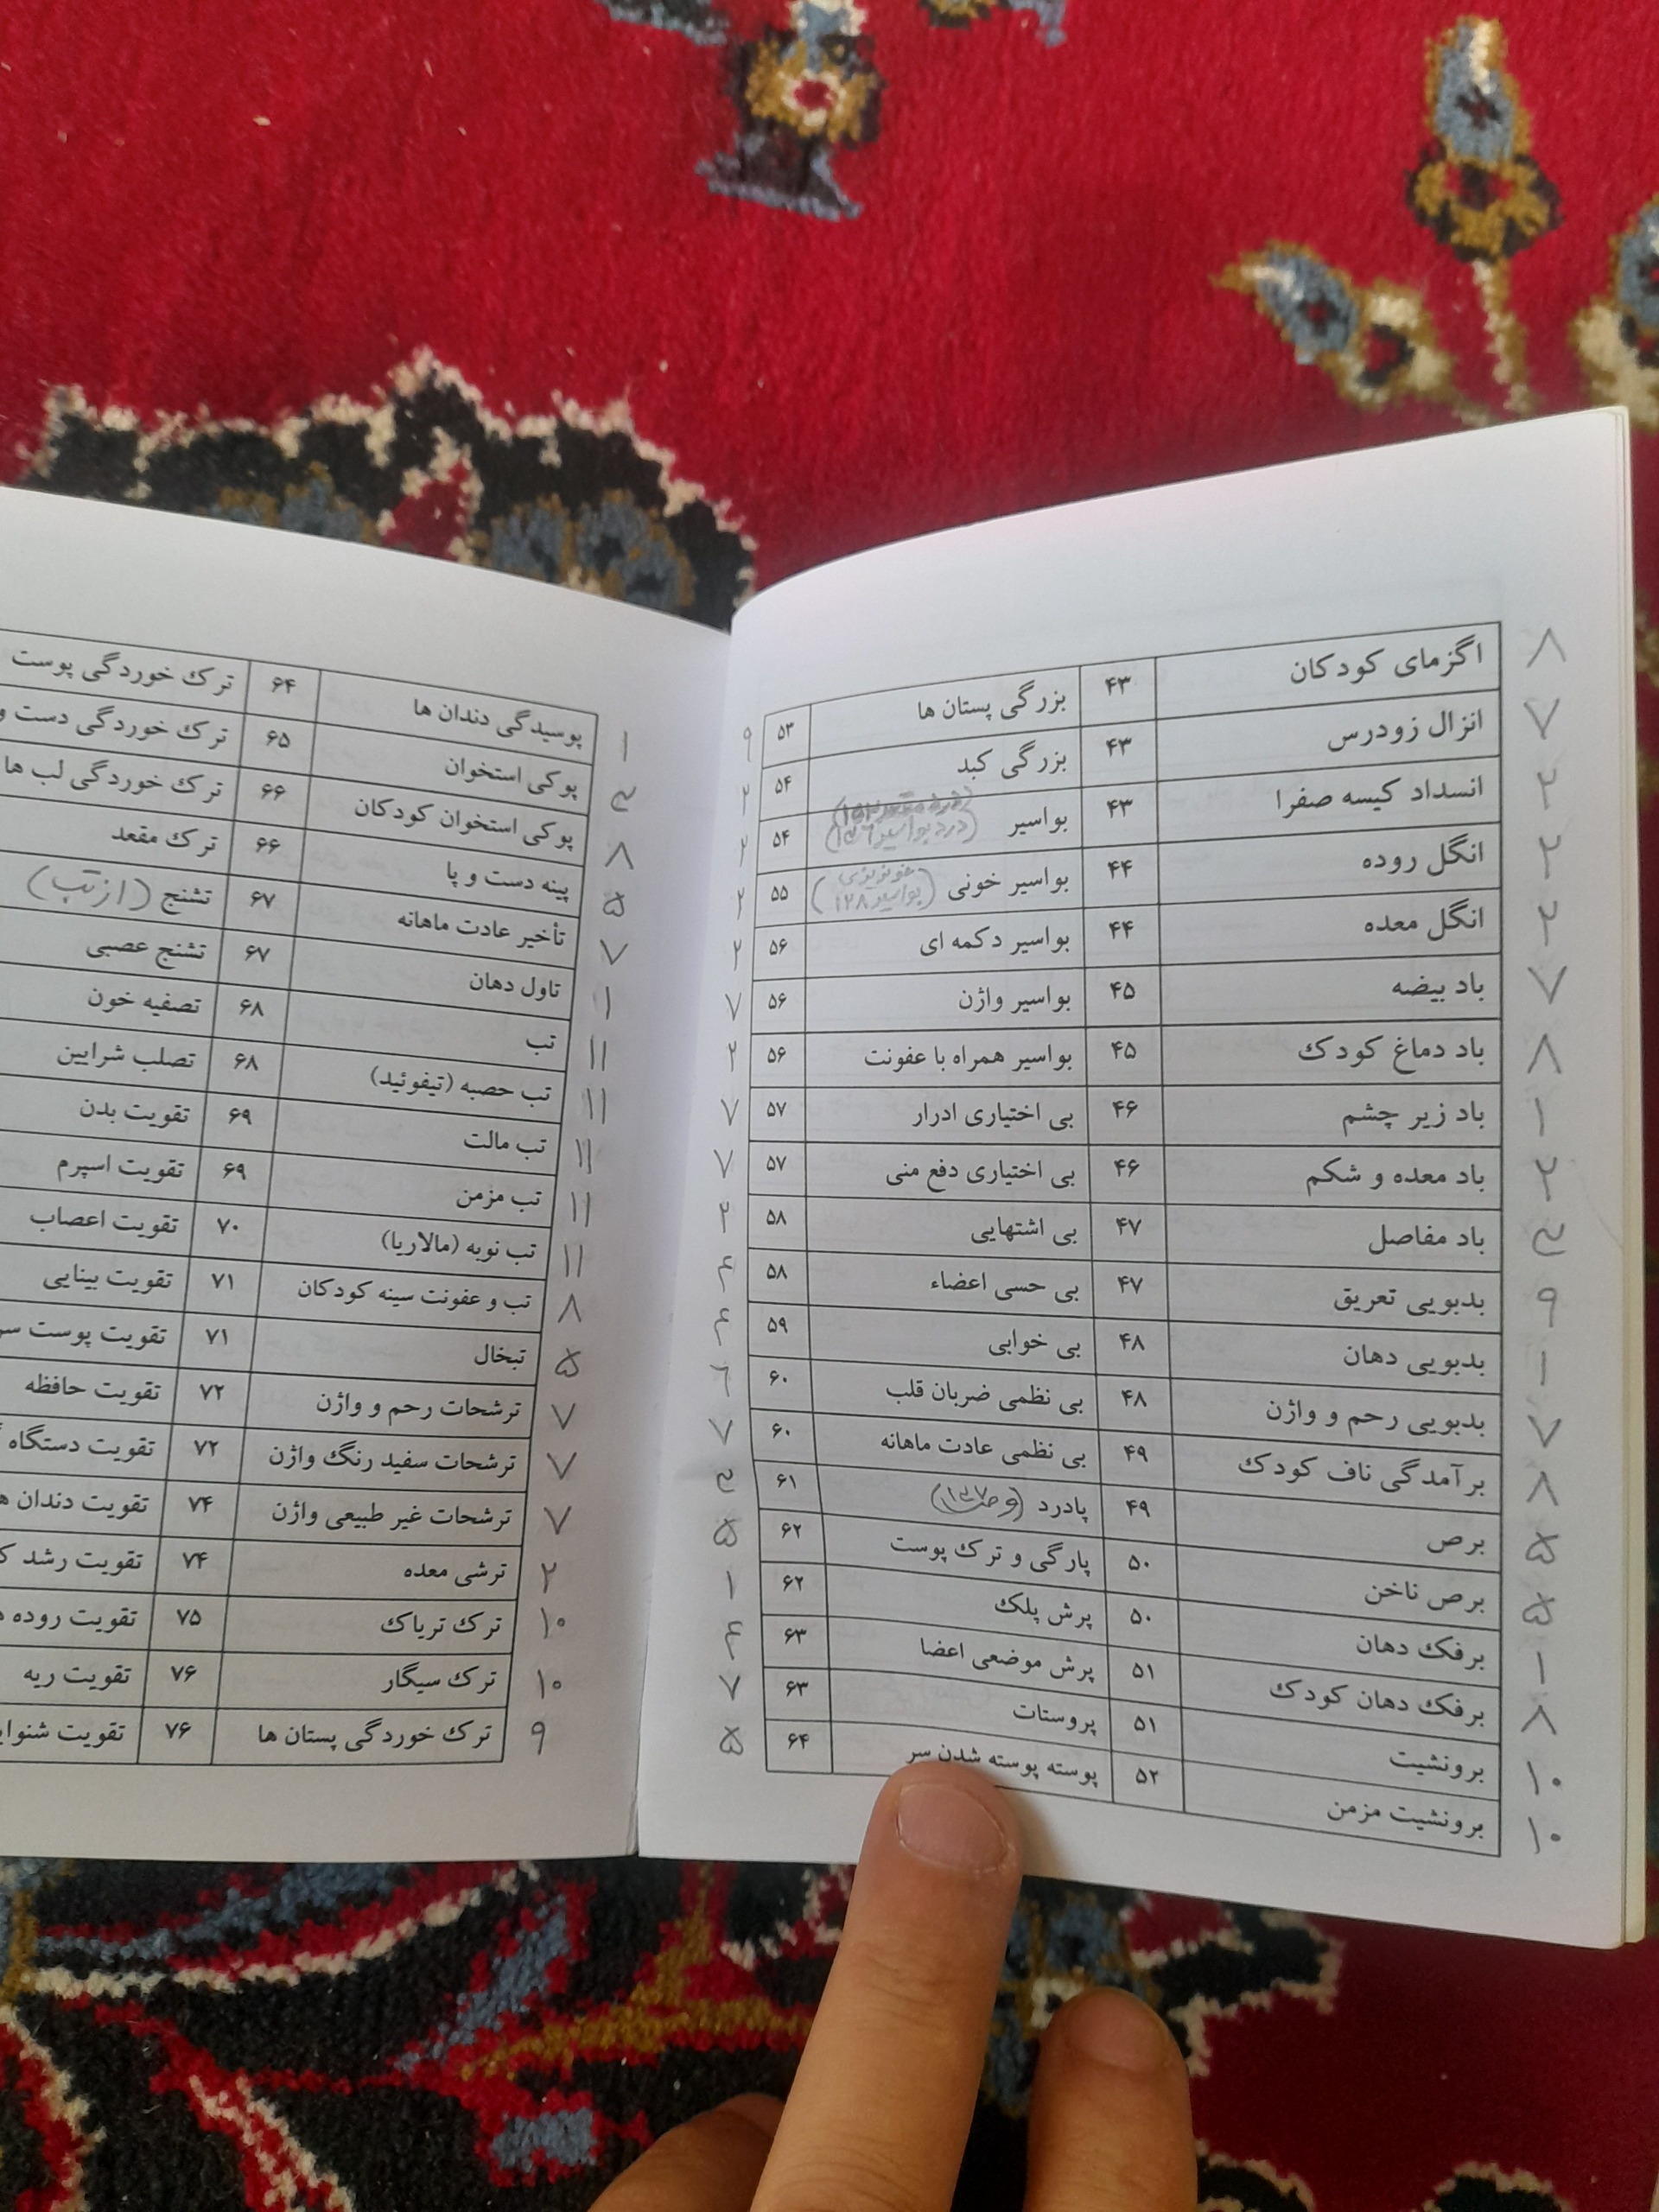 ۸ اگزمای کودکان ۴۳ بزرگی پستان ها ۵۳ ۹
۷ انزال زودرس ۴۳ بزرگی کبد ۵۴ ۲
۲ انسداد کیسه صفرا ۴۳ بواسیر (درد بواسیر ۱۳۶) ۵۴ ۲
۲ انگل روده ۴۴ بواسیر خونی (خونریزی بواسیر ۱۲۸) ۵۵ ۲
۲ انگل معده ۴۴ بواسیر دکمه ای ۵۶ ۲
۷ باد بیضه ۴۵ بواسیر واژن ۵۶ ۷
۸ باد دماغ کودک ۴۵ بواسیر همراه با عفونت ۵۶ ۲
۱ باد زیر چشم ۴۶ بی اختیاری ادرار ۵۷ ۷
۲ باد معده و شکم ۴۶ بی اختیاری دفع منی ۵۷ ۷
۳ باد مفاصل ۴۷ بی اشتهایی ۵۸ ۲
۹ بدبویی تعریق ۴۷ بی حسی اعضاء ۵۸ ۴
۱ بدبویی دهان ۴۸ بی خوابی ۵۹ ۴
۷ بدبویی رحم و واژن ۴۸ بی نظمی ضربان قلب ۶۰ ۶
۸ برآمدگی ناف کودک ۴۹ بی نظمی عادت ماهانه ۶۰ ۷
۵ برص ۴۹ پادرد ۶۱ ۳
۵ برص ناخن ۵۰ پارگی و ترک پوست ۶۲ ۵
۱ برفک دهان ۵۰ پرش پلک ۶۲ ۱
۸ برفک دهان کودک ۵۱ پرش موضعی اعضا ۶۳ ۴
۱۰ برونشیت ۵۱ پروستات ۶۳ ۷
۱۰ برونشیت مزمن ۵۲ پوسته پوسته شدن سر ۶۴ ۵
۱ پوسیدگی دندان ها ۶۴ ترک خوردگی پوست
۳ پوکی استخوان ۶۵ ترک خوردگی دست و
۸ پوکی استخوان کودکان ۶۶ ترک خوردگی لب ها
۵ پینه دست و پا ۶۶ ترک مقعد
۷ تأخیر عادت ماهانه ۶۷ تشنج (از تب)
۱ تاول دهان ۶۷ تشنج عصبی
۱۱ تب ۶۸ تصفیه خون
۱۱ تب حصبه (تیفوئید) ۶۸ تصلب شرایین
۱۱ تب مالت ۶۹ تقویت بدن
۱۱ تب مزمن ۶۹ تقویت اسپرم
۱۱ تب نوبه (مالاریا) ۷۰ تقویت اعصاب
۸ تب و عفونت سینه کودکان ۷۱ تقویت بینایی
۵ تبخال ۷۱ تقویت پوست سر
۷ ترشحات رحم و واژن ۷۲ تقویت حافظه
۷ ترشحات سفید رنگ واژن ۷۲ تقویت دستگاه
۷ ترشحات غیر طبیعی واژن ۷۴ تقویت دندان
۲ ترشی معده ۷۴ تقویت رشد
۱۰ ترک تریاک ۷۵ تقویت روده
۱۰ ترک سیگار ۷۶ تقویت ریه
۹ ترک خوردگی پستان ها ۷۶ تقویت